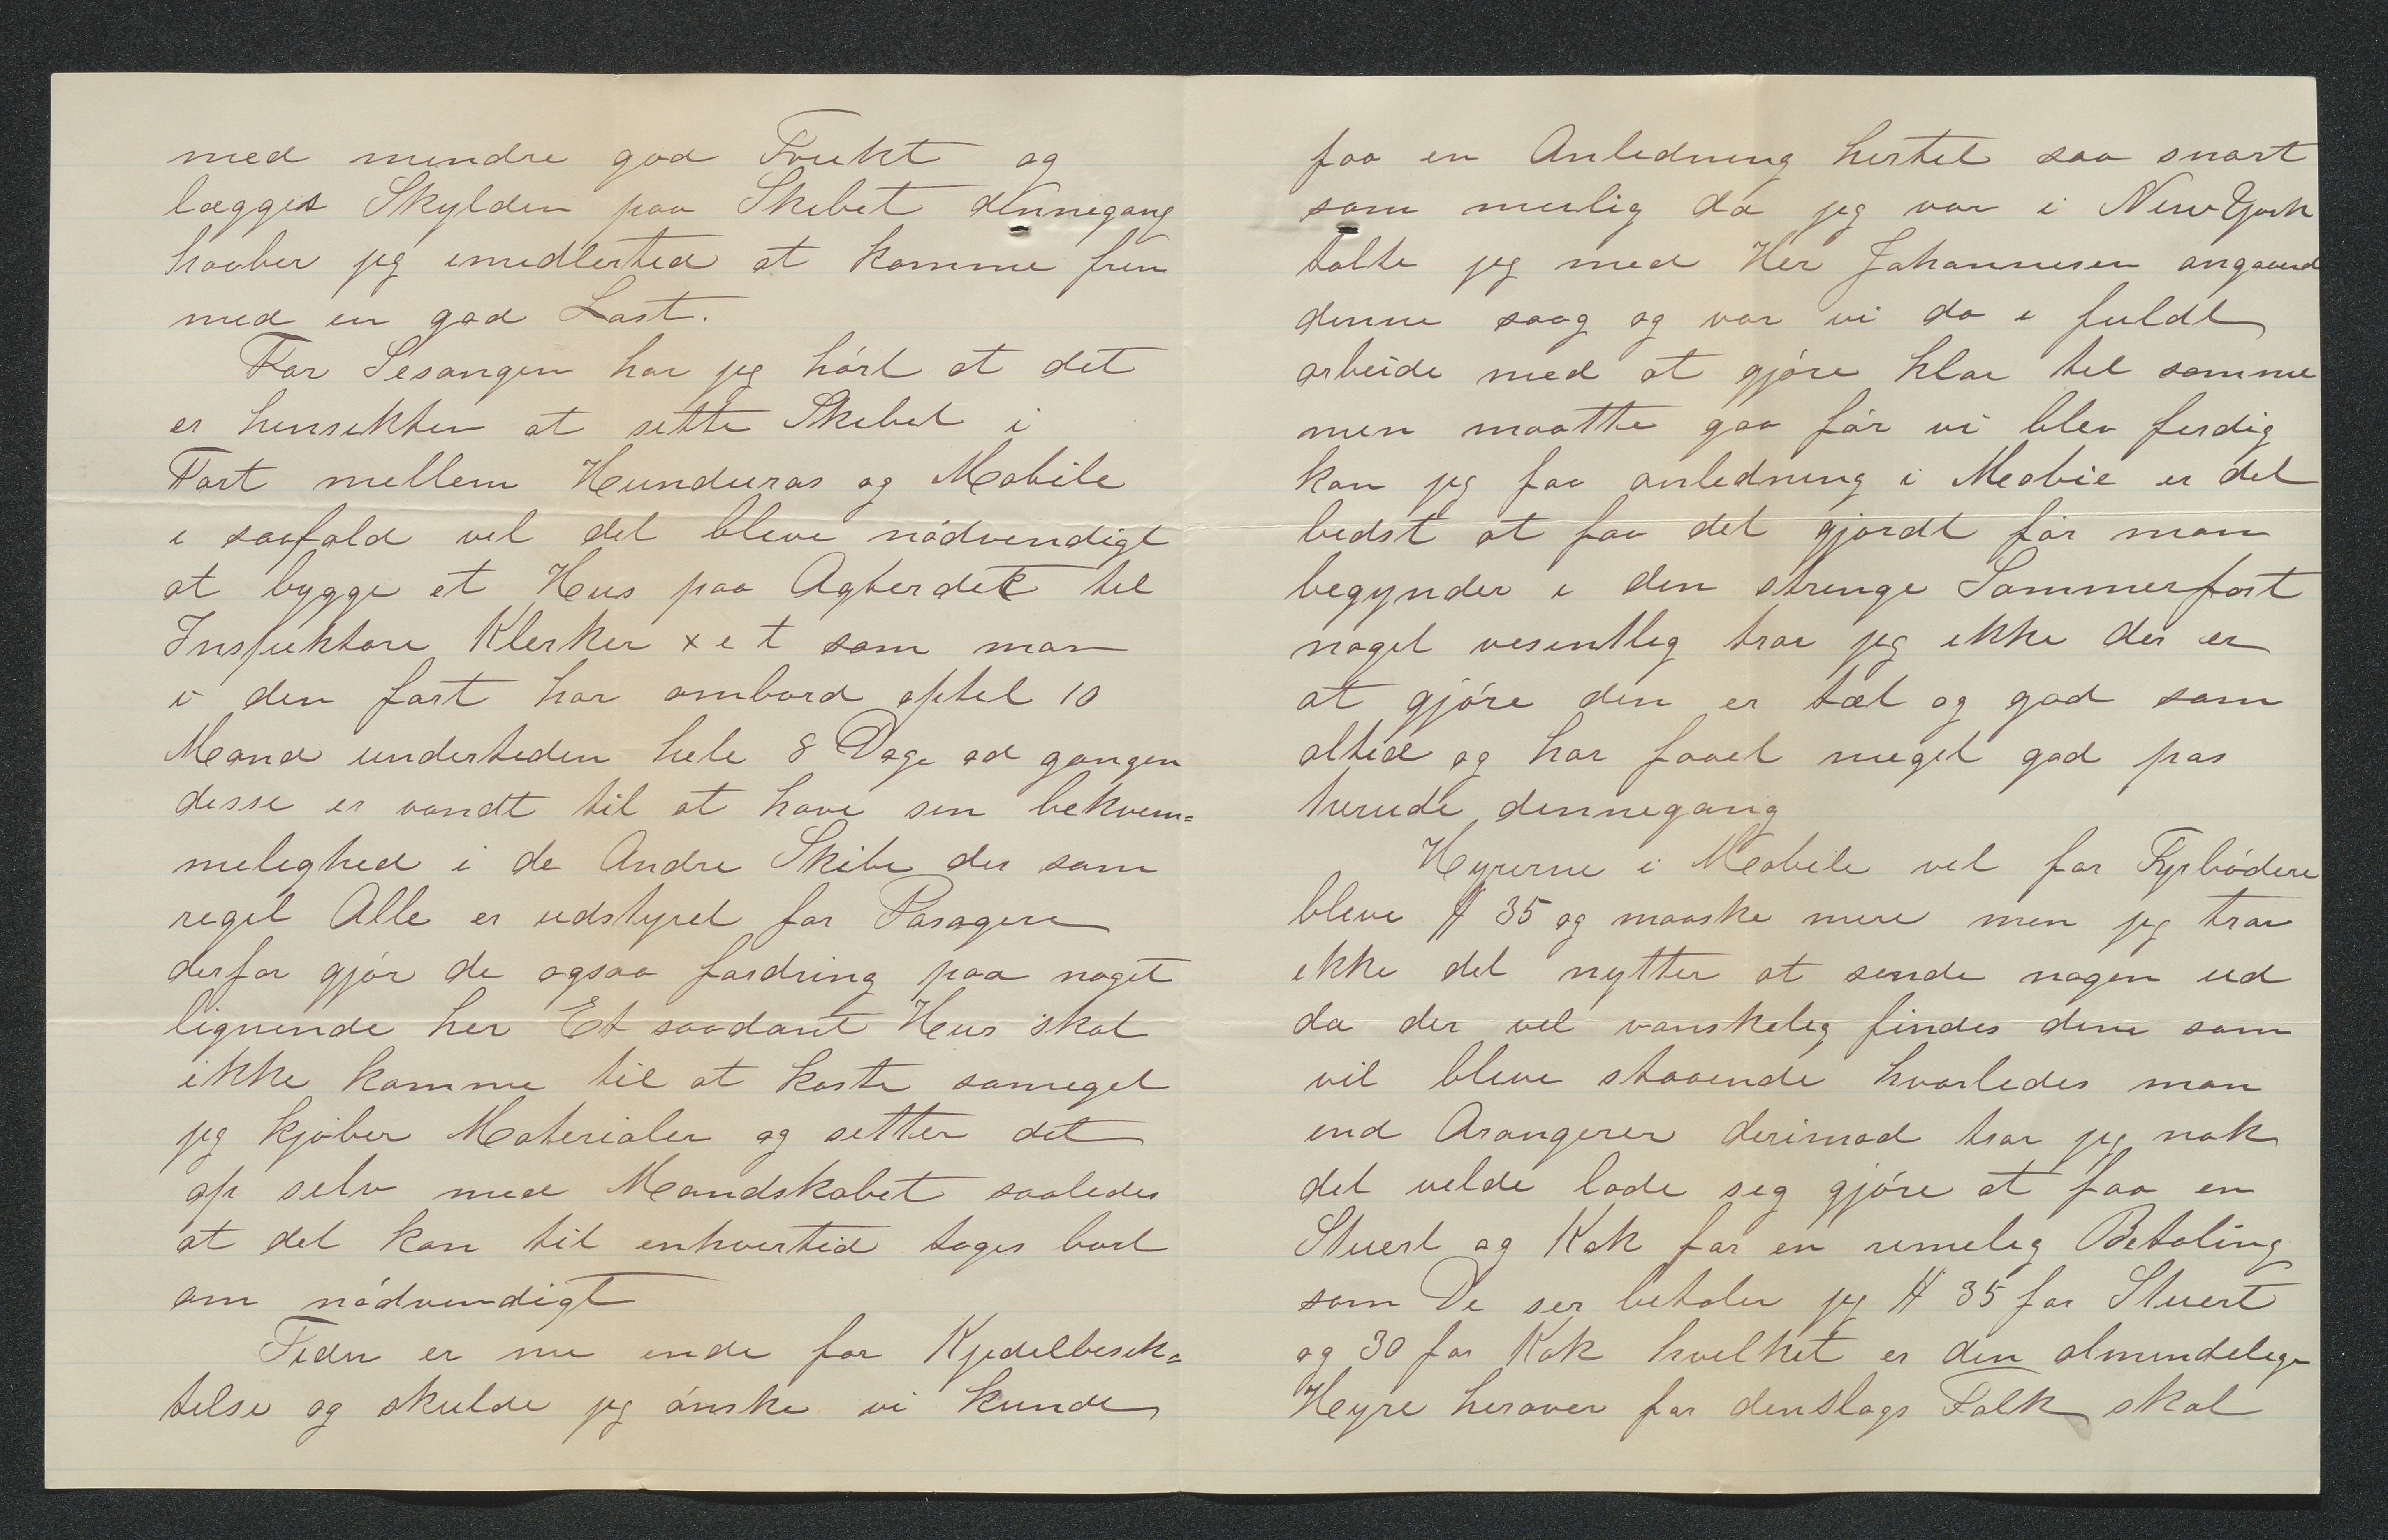 med mindre god Frukt og
lægges Skylden paa Skibet dennegang
haaber jeg imidlertid at komme frem
med en god Last.
For Sesongen har jeg hørt at det
er hensikten at sette Skibet i
Fart mellem Hunduras og Mobile
i saafald vil det blive nødvendigt
at bygge et Hus paa Agterdek til
Inspektøre Klerker x e t som man
i den fart har ombord optil 10
Mand undertiden hele 8 Dage ad gangen
disse er vandt til at have sin bekvem=
melighed i de Andre Skibe der som
regel Alle er udstyret for Pasagere
derfor gjør de ogsaa fordring paa noget
lignende her Et saadant Hus skal
ikke komme til at koste sameget
jeg kjøber Materialer og setter det
op selv med Mandskabet saaledes
at det kan til enhvertid tages bort
om nødvendigt
Tiden er nu inde for Kjedelbesik=
telse og skulde jeg ønske vi kunde
faa en Anledning hertil saa snart
som mulig da jeg var i New York
talte jeg med Her Johannesen angaaend
denne saag og var vi da i fuldt
arbeide med at gjøre klar til samme
men maatte gaa før vi blev ferdig
kan jeg faa anledning i Mobie er det
bedst at faa det gjordt før man
begynder i den strenge Sommerfart
noget vesentlig tror jeg ikke der er
at gjøre den er tæt og god som
altid og har faaet meget god pas
herude dennegang
Hyrerne i Mobile vil for Fyrbødere
blive $ 35 og maaske mere men jeg tror
ikke det nytter at sende nogen ud
da der vel vanskelig findes dem som
vil blive staaende hvorledes man
end Arangerer derimod tror jeg nok
det vilde lade sig gjøre at faa en
Stuert og Kok for en rimelig Betaling
som De ser betaler jeg $ 35 for Stuert
og 30 for Kok hvilket er den almindelige
Hyre herover for denslags Folk skal